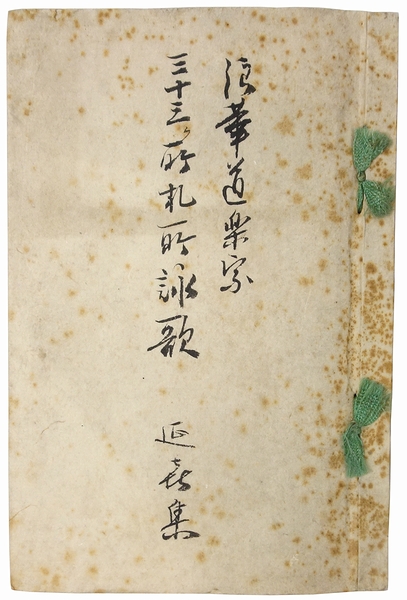 浪華道楽宗
三十三ヶ所札所詠歌 延喜集